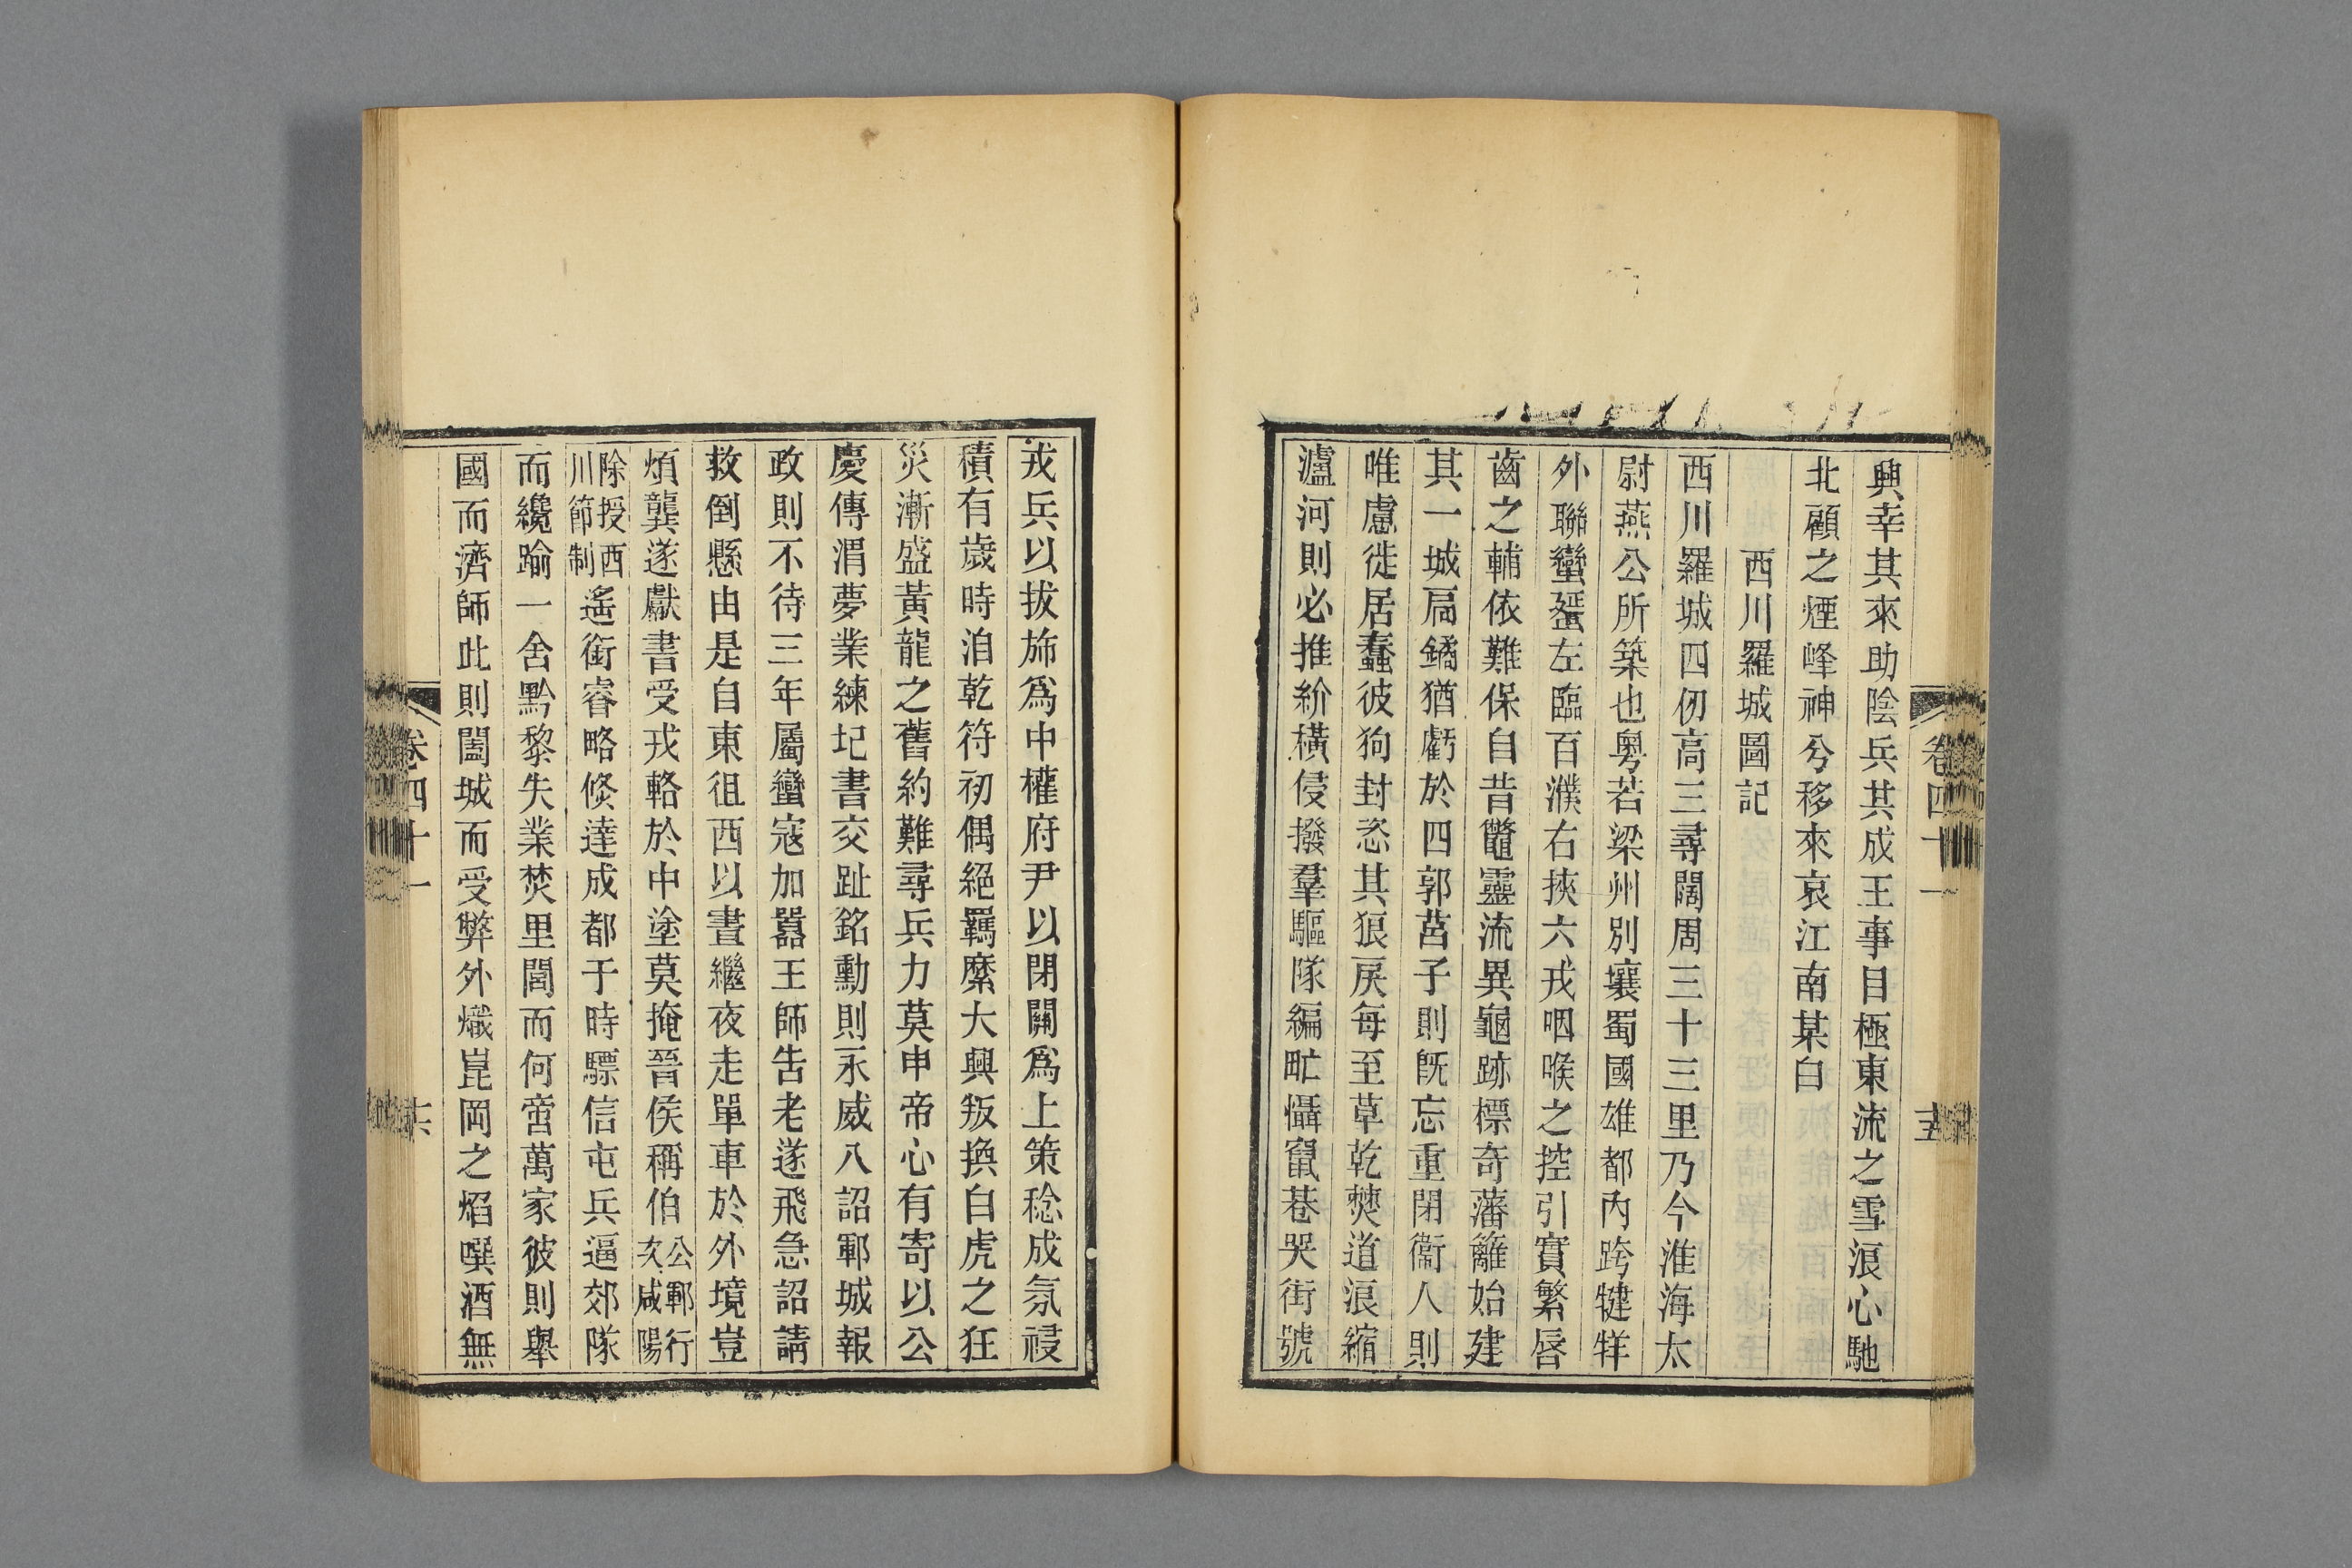 卷四十一
十五
興幸其來助陰兵其成王事目極東流之雪浪心馳
北顧之煙峰神兮移來哀江南某白
西川羅城圖記
西川羅城四仞高三尋闊周三十三里乃今淮海太
尉燕公所築也粵若梁州別壤蜀國雄都內跨犍牂
外聯蠻蜑左臨百濮右挾六戎咽喉之控引實繁唇
齒之輔依難保自昔鼈靈流異龜跡標奇藩籬始建
其一城扃鐍猶虧於四郭莒子則旣忘重閉衞人則
唯慮徙居蠢彼狗封恣其狼戾每至草乾僰道浪縮
瀘河則必推紒橫侵撥羣驅隊編甿懾竄巷哭街號
戎兵以拔斾爲中權府尹以閉關爲上策稔成氛祲
積有歲時洎乾符初偶絕羈縻大興叛換白虎之狂
災漸盛黃龍之舊約難尋兵力莫申帝心有寄以公
慶傳渭夢業練圮書交趾銘勳則永威八詔鄆城報
政則不待三年屬蠻寇加嚚王師告老遂飛急詔請
救倒懸由是自東徂西以晝繼夜走單車於外境豈
煩襲遂獻書受戎輅於中塗莫掩晉侯稱伯公鄆行次咸陽
除授西川節制遙銜睿略倏達成都于時驃信屯兵逼郊隊
而纔踰一舍黔黎失業焚里閭而何啻萬家彼則舉
國而濟師此則闔城而受弊外熾崑岡之焰噀酒無
卷四十一
十六